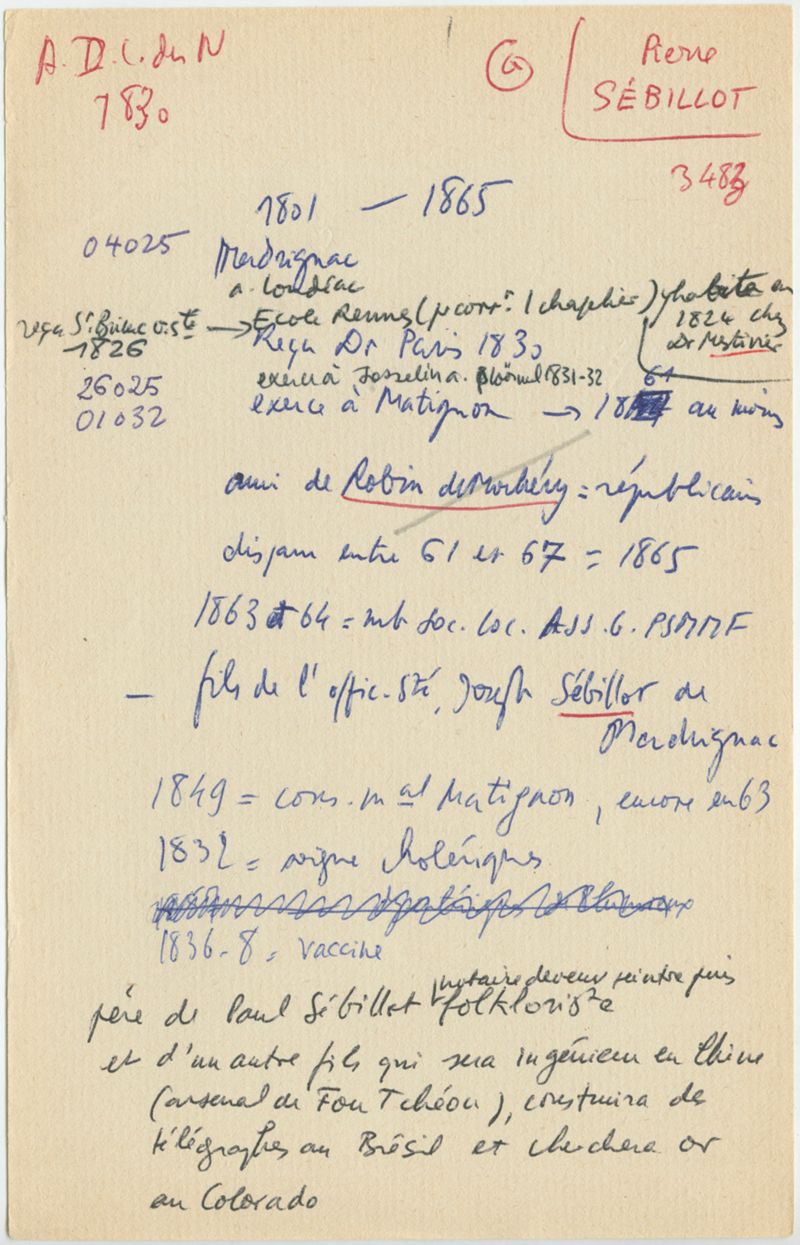 A. D. C. du N
1830
G
Pierre
SÉBILLOT
348
1801 — 1865
04025
Merdrignac
a. Loudéac
→ Ecole Rennes (pr corr. 1 chapelier) y habite en
1824 chez
Dr Mestivier
reçu St Brieuc o. sté
1826
Reçu Dr Paris 1830
26025
exercera à Josselin a. Ploërmel 1831-32
01032
exerce à Matignon → 1861 au moins
ami de Robin de Morhéry = républicain
disparu entre 61 et 67 = 1865
1863 et 64 = mb Soc. loc. ASS. G. PSMMF
— fils de l'offic. Sté, Joseph Sébillot de
Merdrignac
1849 = cons. mal Matignon, encore en 63
1832 = soigne cholériques
1836-8 = vaccine
notaire devenu peintre puis
père de Paul Sébillot folkloriste
et d'un autre fils qui sera ingénieur en Chine
(arsenal de Fou Tchéou), construira des
télégraphes au Brésil et cherchera or
au Colorado